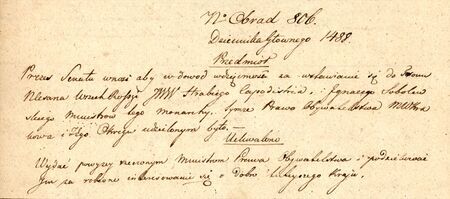 No Obrad 806.
Dziennika Głownego 1488.
Przedmiot
Prezes Senatu wnosi aby w dowod wdzięczności za wstawianie się do
Wszech Rossyi JWW Hrabiego Capodistria, i Ignacego Sobolew
skiego Ministrow tego Monarchy, Prawo Obywatelstwa M. Kra
kowa i Jego Okręgu udzielonem było,—
Uchwalono
Wydać powyżej rzeczonym Ministrom Prawa Obywatelstwa i podziękować
Im za interesowanie się o dobro tutejszego Kraju.